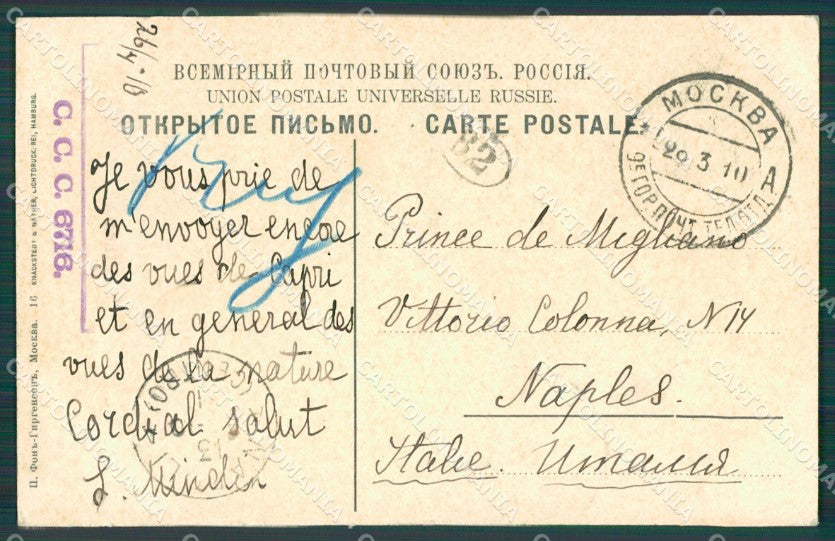 ВСЕМІРНЫЙ ПОЧТОВЫЙ СОЮЗЪ. РОССІЯ.
UNION POSTALE UNIVERSELLE RUSSIE.
ОТКРЫТОЕ ПИСЬМО. CARTE POSTALE.
C. C. C. 6716.
П. Фонъ-Гиргенсонъ, Москва. 16 KNACKSTEDT & NÄTHER, LICHTDRUCKEREI, HAMBURG.
Je vous prie de
m'envoyer encore
des vues de Capri
et en general des
vues de la nature
Cordial salut
S. Minder
МОСКВА
29 3 10
А
82
Prince de Migliano
Vittorio Colonna, N 14
Naples.
Italie. Италия
CARTOLINOMANIA